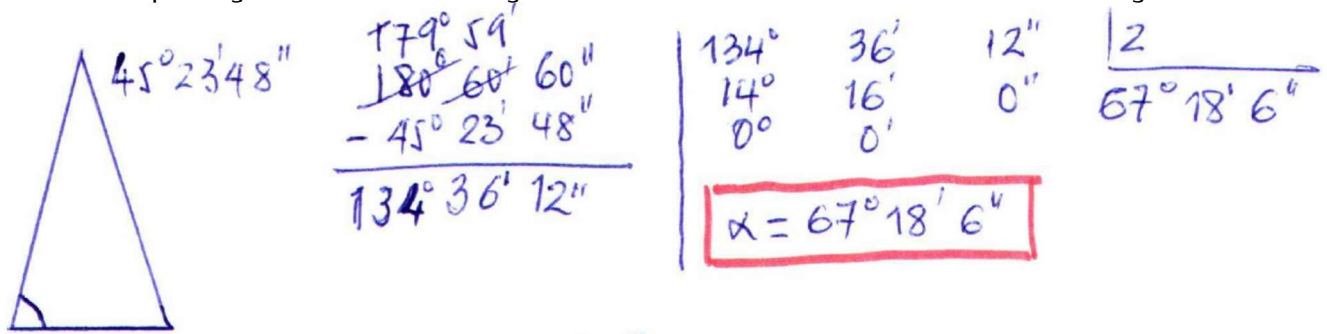 45°23'48"
179° 59'
180° 60' 60"
- 45° 23' 48"
134° 36' 12"
134° 36' 12" |2
14° 16' 0" 67° 18' 6"
0° 0'
α = 67° 18' 6"